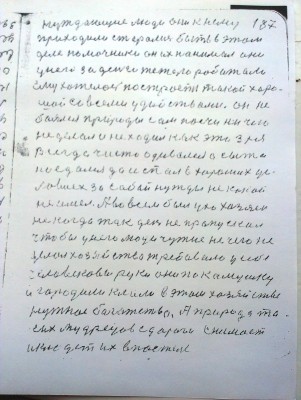 нуждающие люди они к нему 187
приходили старались быть в этом
деле помочники он их нанимал они
у него за деньги тежело работали
ему хотелось построет такой хоро-
шой со всеми удобствами. он не
боялся природы сам почти ничего
не делал а не ходил как это зря
Всегда чисто одевался сыта
наедался да и спал в хороших ус-
ловиех за сабой нужды не какой
не имел. А во всем был ухо хозяин
не когда так ден не пропускал
чтобы у него люди чужие не чего не
делал хозяйство требовало у себя
человековы руки они по камушку
й городили клали в этом хозяйстве
нужное богатство, А природа та-
ких мудрецов с дороги снимает
и кладет их в постел